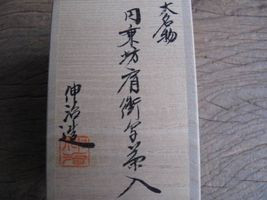 大名物
円乗坊肩衝写茶入
伸治造